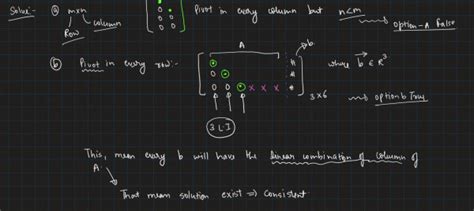 Solui:- ⓐ m×n
Row column
0 0 Pivot in every column but n<m
→ option-A False
ⓑ Pivot in every row:-
A b
0 #
0 0 #
0 0 x x x #
3×6
where b⃗ ∈ R³
→ option b True
3 L·I
This, mean every b will have the linear combination of column of
A
That mean solution exist ⇒ Consistent